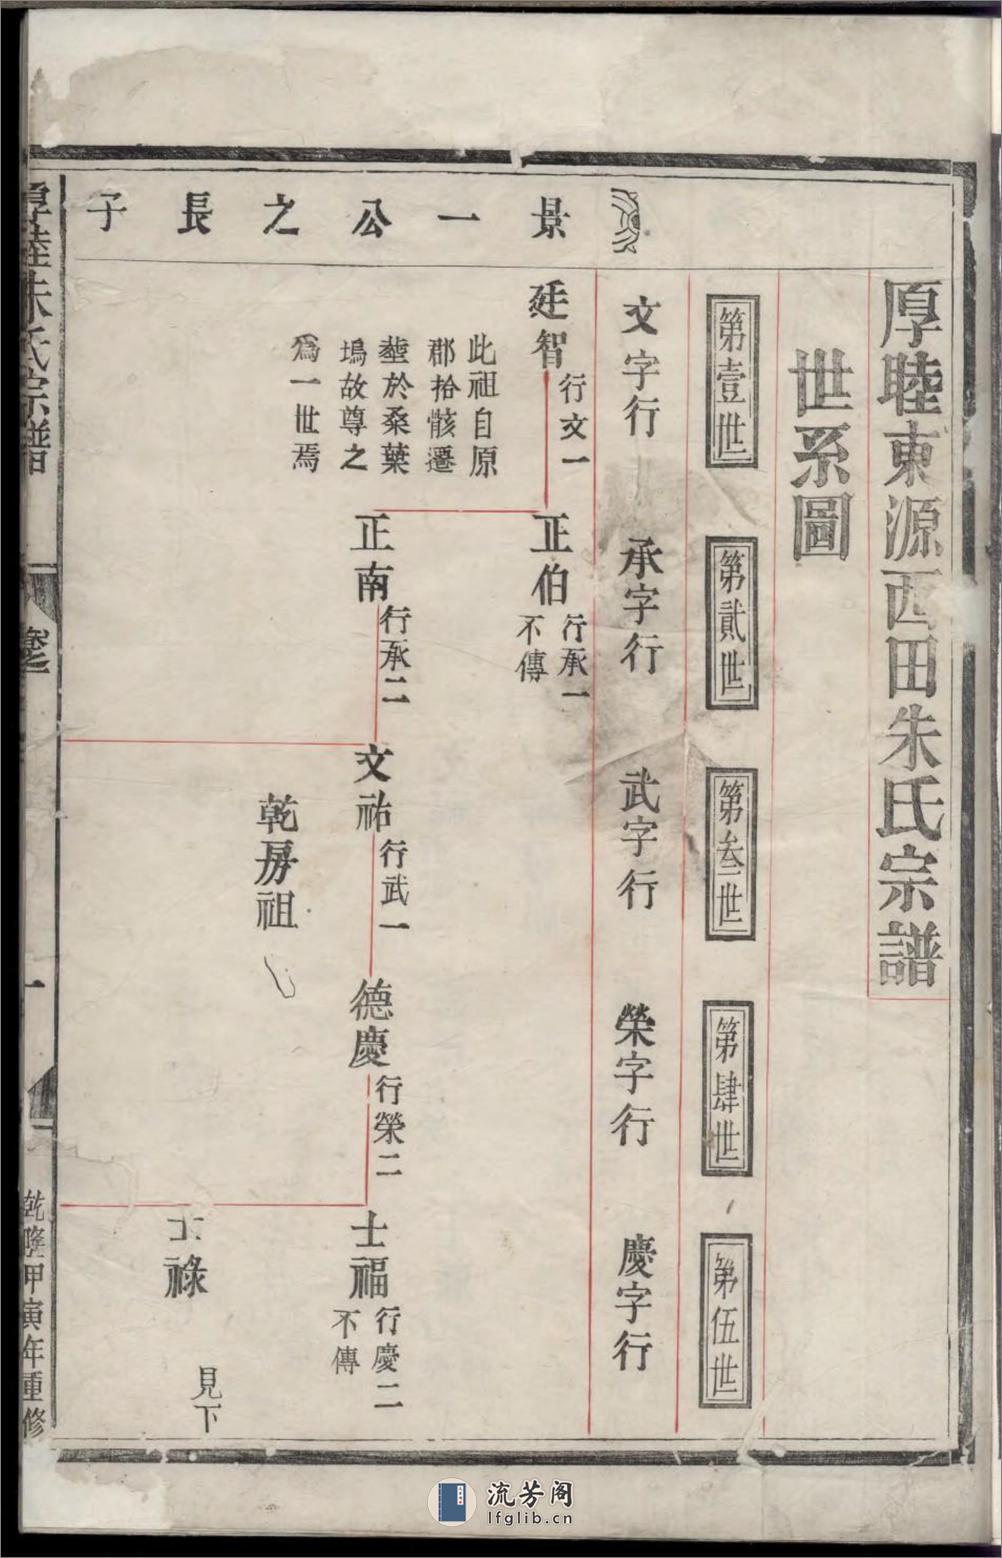 厚睦東源西田朱氏宗譜
世系圖
第壹世
第貳世
第叁世
第肆世
第伍世
文字行
承字行
武字行
榮字行
慶字行
景一公之長子
廷智
行文一
此祖自原
郡拾骸遷
塟於桑葉
塢故尊之
為一世焉
正伯
行承一
不傳
正南
行承二
文祐
行武一
乾房祖
德慶
行榮二
士福
行慶二
不傳
士祿
見下
厚睦朱氏宗譜
卷之
一
乾隆甲寅年重修
流芳阁
lfglib.cn